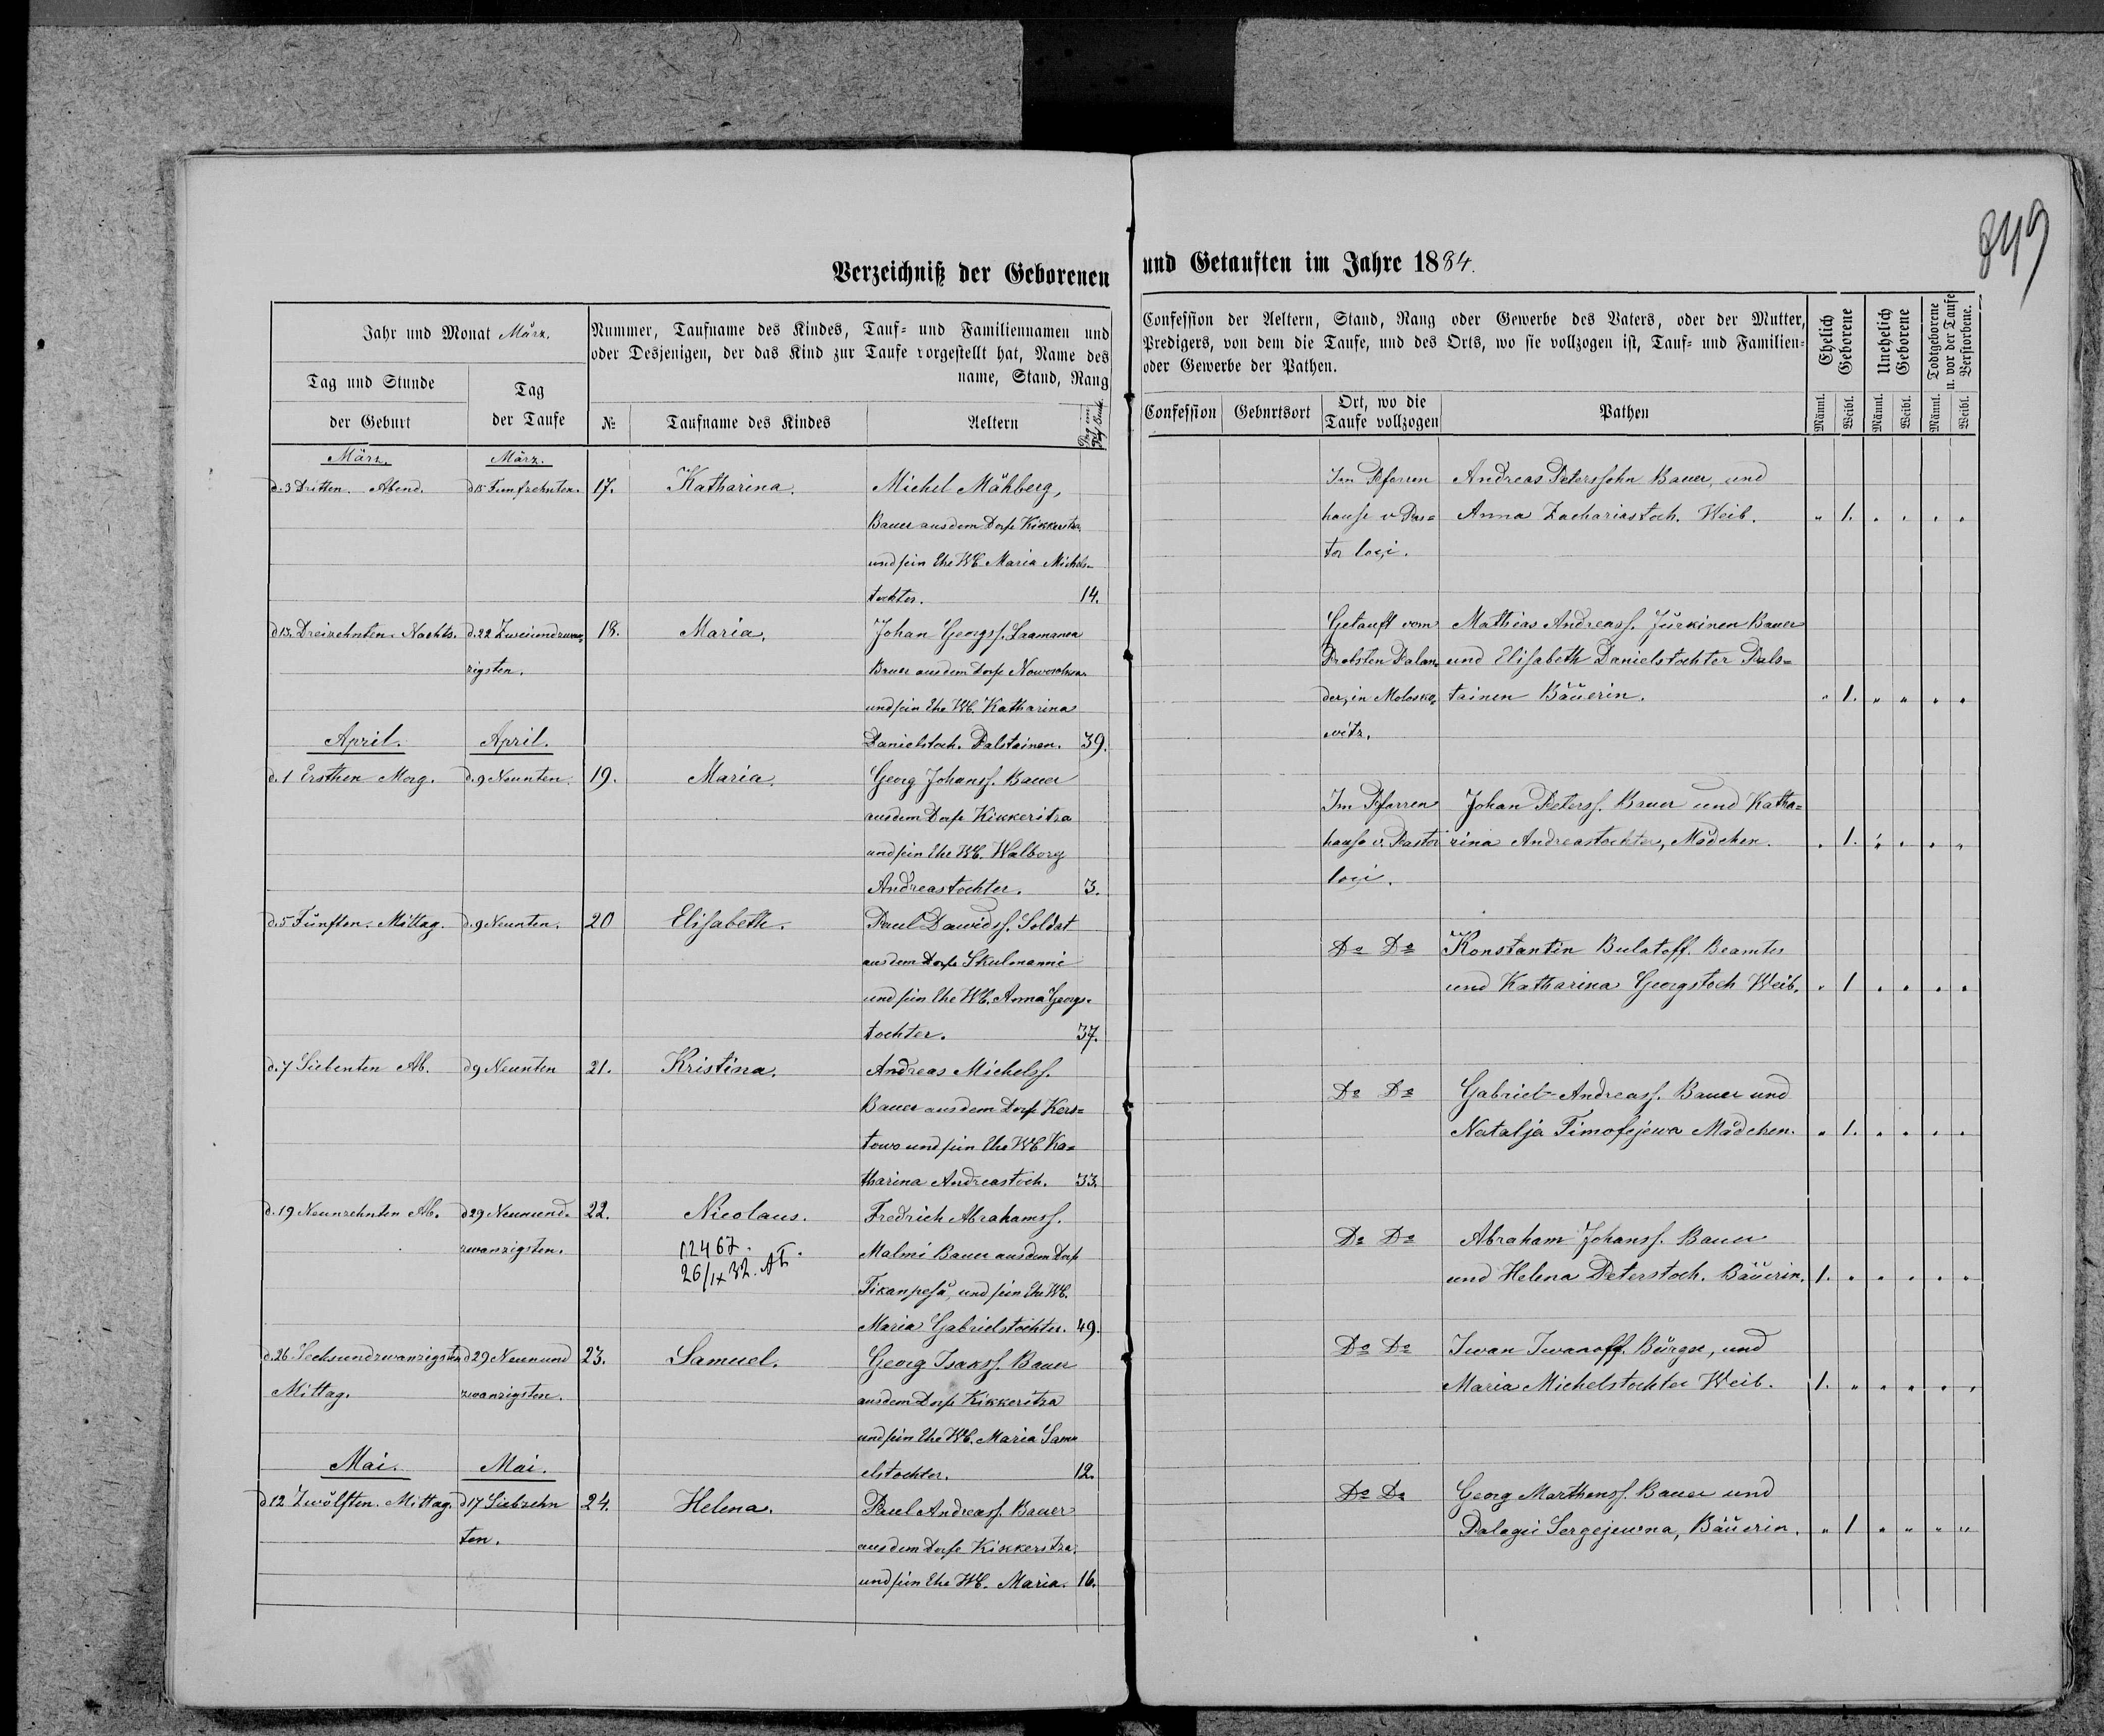 849
Verzeichniß der Geborenen und Getauften im Jahre 1884.
Jahr und Monat März.
Tag und Stunde
der Geburt
Tag
der Taufe
Nummer, Taufname des Kindes, Tauf- und Familiennamen und
oder Desjenigen, der das Kind zur Taufe vorgestellt hat, Name des
name, Stand, Rang
№
Taufname des Kindes
Aeltern
Confession der Aeltern, Stand, Rang oder Gewerbe des Vaters, oder der Mutter,
Predigers, von dem die Taufe, und des Orts, wo sie vollzogen ist, Tauf- und Familien-
oder Gewerbe der Pathen.
Confession
Geburtsort
Ort, wo die
Taufe vollzogen
Pathen
Ehelich
Geborene
Unehelich
Geborene
Todtgeborene
u. vor der Taufe
Verstorbene.
Männl.
Weibl.
Männl.
Weibl.
Männl.
Weibl.
März.
März.
d. 3 Dritten. Abend.
d 15 Funfzehnten.
17.
Katharina.
Michel Mähberg,
Bauer aus dem Dorfe Kikkeritza,
und sein Ehe Wb. Maria Michels-
tochter. 14.
Im Pfarren
hause v. Pas=
tor loci.
Andreas Peterssohn Bauer, und
Anna Zachariastoch. Weib.
" 1. " " " "
d 13. Dreizehnten. Nachts.
d. 22 Zweiundzwan,
zigsten.
18.
Maria.
Johan Georgss. Laamanen
Bauer aus dem Dorfe
und sein Ehe Wb. Katharina
Danielstoch. Palstainen. 39.
Getauft vom
Probsten Palan,
der, in Molosko,
witz.
Mathias Andreass. Jürkinen Bauer
und Elisabeth Danielstochter Pals=
tainen Bäuerin.
" 1. " " " "
April.
April.
d. 1 Ersthen Morg.
d. 9 Neunten.
19.
Maria.
Georg Johanss. Bauer
aus dem Dorfe Kikkeritza
und sein Ehe Wb. Walborg
Andreastochter. 3.
Im Pfarren
hause v. Pastor
loci.
Johan Peterss. Bauer und Katha=
rina Andreastochter, Mädchen.
" 1. " " " "
d. 5 Fünften. Mittag.
d. 9 Neunten.
20
Elisabeth.
Paul Dawidss. Soldat
aus dem Dorfe Skulmanni
und sein Ehe Wb. Anna Georgs-
tochter. 37.
Do Do
Konstantin Bulatoff. Beamter
und Katharina Georgstoch Weib.
" 1 " " " "
d. 7 Siebenten Ab.
d 9 Neunten
21.
Kristina.
Andreas Michelss.
Bauer aus dem Dorfe Kers=
towo und sein Ehe Wb Ka=
tharina Andreastoch. 33.
Do Do
Gabriel Andreass. Bauer und
Natalja Timofejewa Mädchen.
" 1. " " " "
d. 19 Neunzehnten Ab.
d 29 Neunund-
zwanzigsten.
22.
Nicolaus.
12467.
26/IX 32.
Fredrich Abrahamss.
Malmi Bauer aus dem Dorfe
Tikanpesä, und sein Ehe Wb.
Maria Gabrielstochter. 49.
Do Do
Abraham Johanss. Bauer
und Helena Peterstoch. Bäuerin.
1. " " " " "
d. 26 Sechsundzwanzigsten
Mittag.
d 29 Neunund
zwanzigsten.
23.
Samuel.
Georg Isakss. Bauer
aus dem Dorfe Kikkeritza
und sein Ehe Wb. Maria Samu
elstochter. 12.
Do Do
Iwan Iwanoff. Bürger, und
Maria Michelstochter Weib.
1. " " " " "
Mai.
Mai.
d 12 Zwölften. Mittag.
d 17 Siebzehn
ten.
24.
Helena.
Paul Andreass. Bauer
aus dem Dorfe Kikkeritza.
und sein Ehe Wb. Maria. 16.
Do Do
Georg Marthenss. Bauer und
Palagei Sergejewna, Bäuerin.
" 1 " " " "